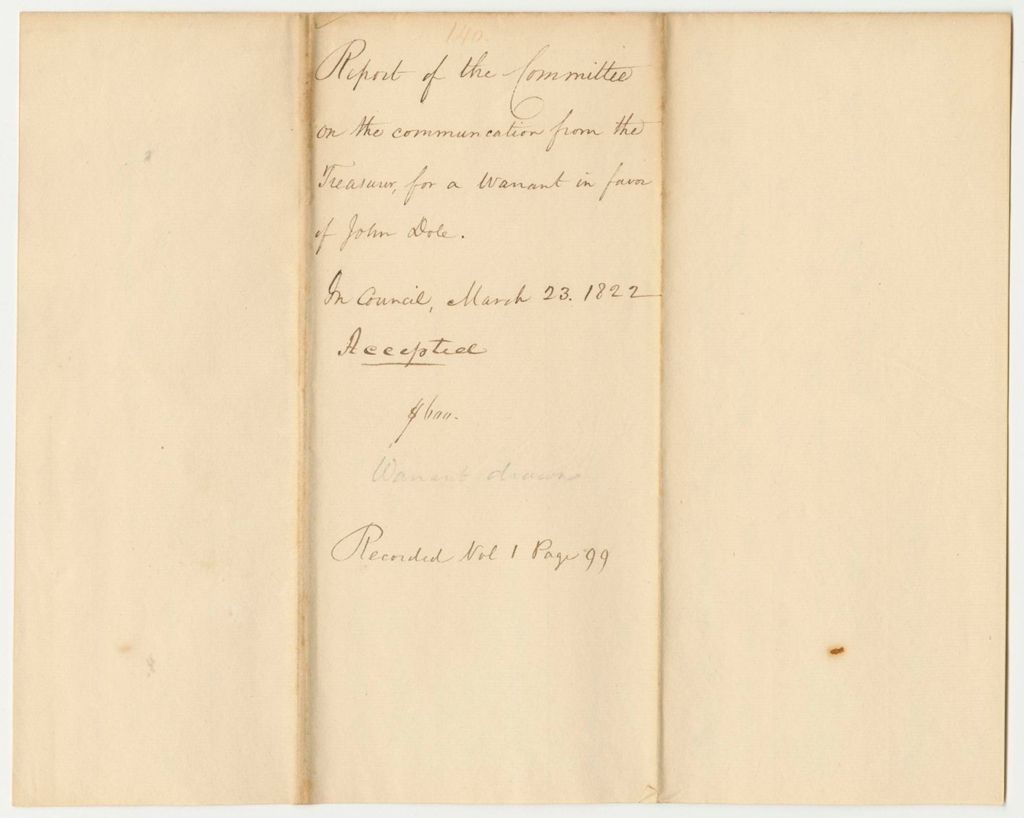 140.
Report of the Committee
on the communcation from the
Treasurer, for a Warrant in favor
of John Dole.
In Council, March 23. 1822
Accepted
$600.
Warrant drawn
Recorded Vol 1 Page 99